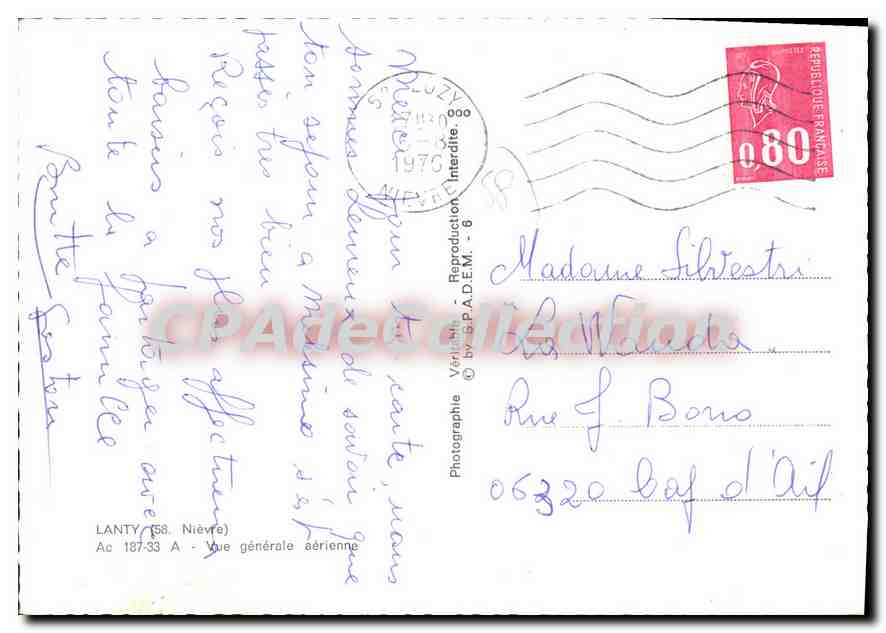 Merci pour ta carte, nous
sommes heureux de savoir que
ton sejour a Messine s'est
passée tres bien
Reçois nos plus affectueux
baisers a partager avec
toute la famille
Gaston
LUZY
1976
NIEVRE
58
REPUBLIQUE FRANÇAISE
0,80
Photographie Véritable - Reproduction Interdite.
© by S.P.A.D.E.M. - 6
Madame Silvestri
La Wanda
Rue J. Bono
06320 Cap d'Ail
CPAdeCollection
LANTY (58. Nièvre)
Ac 187-33 A - Vue générale aérienne